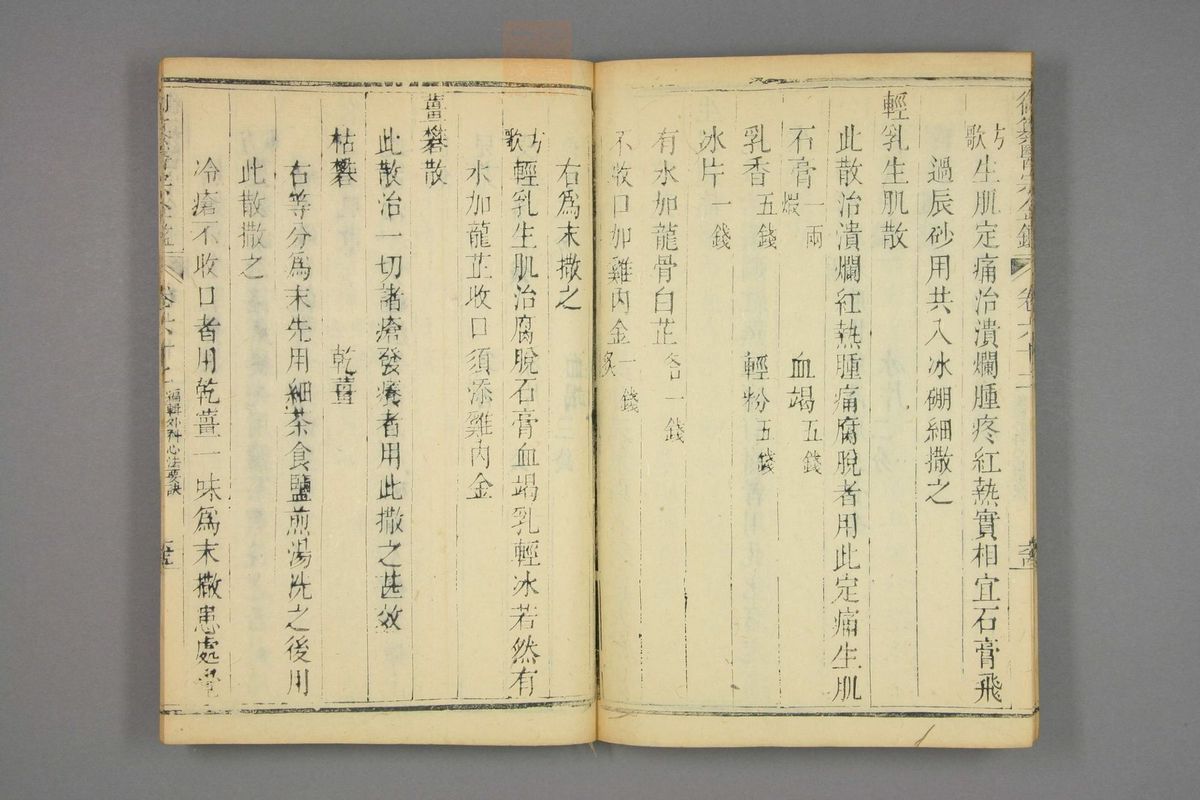 御纂醫宗金鑑 卷六十二
方歌 生肌定痛治潰爛腫疼紅熱實相宜石膏飛
過辰砂用共入冰硼細撒之
輕乳生肌散
此散治潰爛紅熱腫痛腐脫者用此定痛生肌
石膏煆一兩 血竭五錢
乳香五錢 輕粉五錢
冰片一錢
有水加龍骨白芷各一錢
不收口加雞內金炙一錢
右為末撒之
方歌 輕乳生肌治腐脫石膏血竭乳輕冰若然有
水加龍芷收口須添雞內金
薑礬散
此散治一切諸瘡發癢者用此撒之甚效
枯礬 乾薑
右等分為末先用細茶食鹽煎湯洗之後用
此散撒之
冷瘡不收口者用乾薑一味為末撒患處覺
編輯外科心法要訣